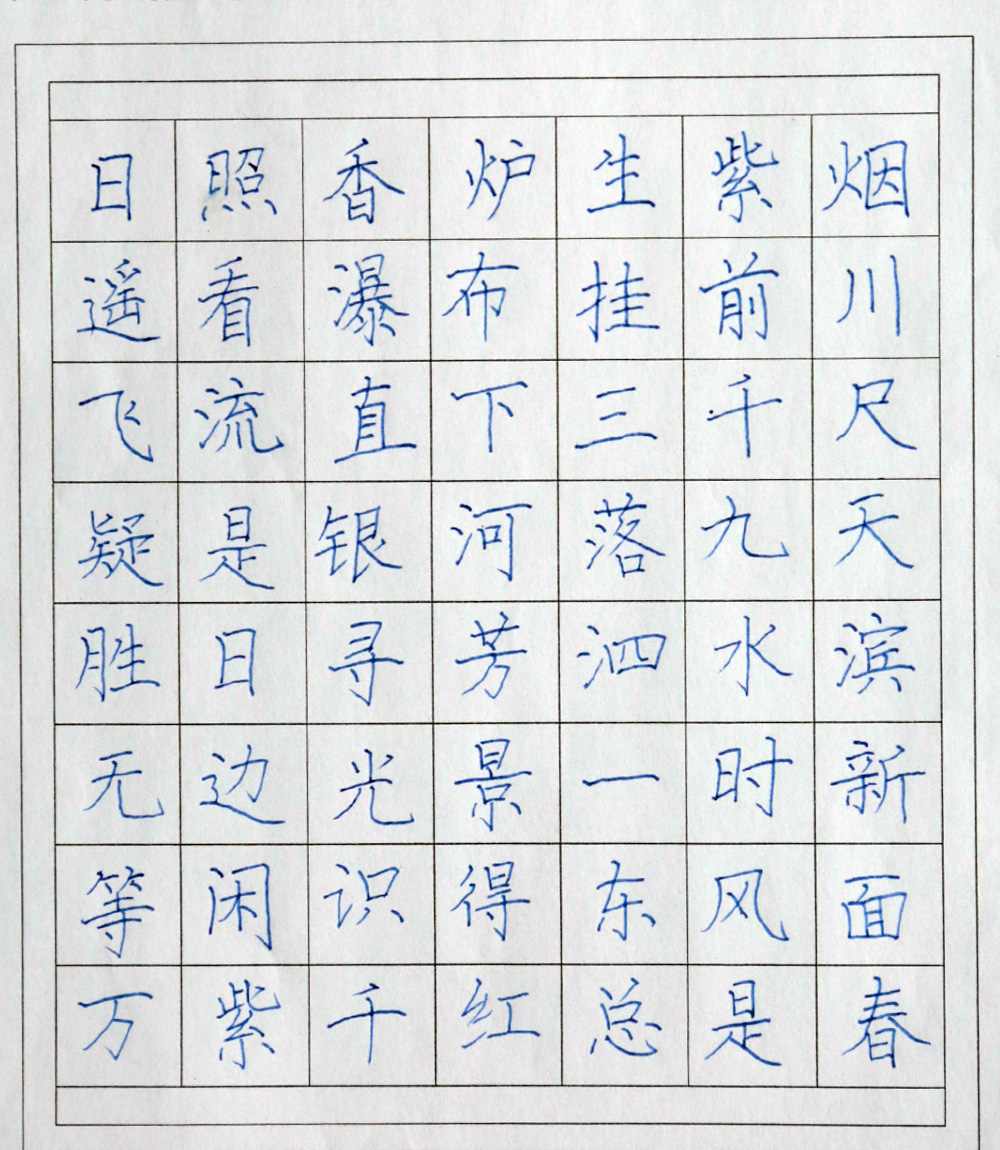 日照香炉生紫烟
遥看瀑布挂前川
飞流直下三千尺
疑是银河落九天
胜日寻芳泗水滨
无边光景一时新
等闲识得东风面
万紫千红总是春